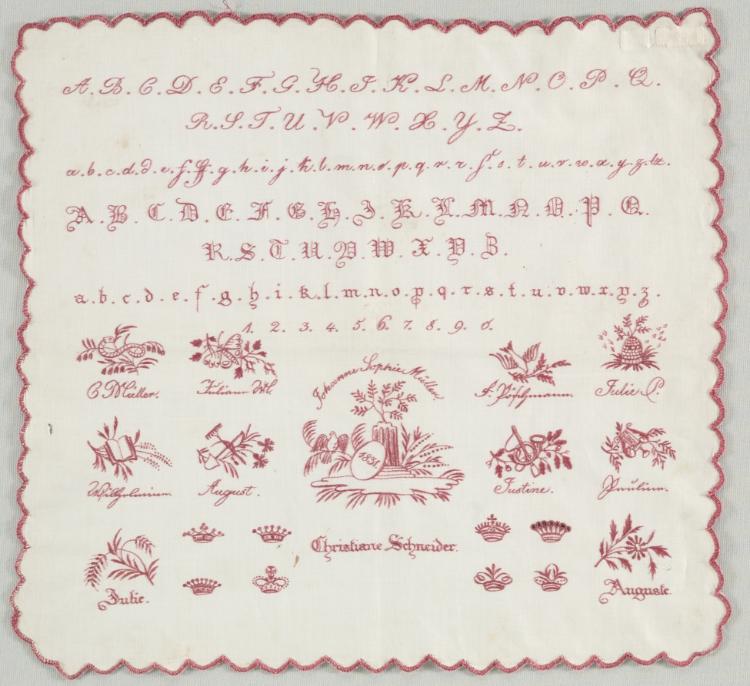 A.B.C.D.E.F.G.H.I.K.L.M.N.O.P.Q.
R.S.T.U.V.W.X.Y.Z.
a.b.c.d.d.e.f.ff.g.h.i.j.k.l.m.n.o.p.q.r.r.ſ.s.t.u.v.w.x.y.z.tz.
A.B.C.D.E.F.G.H.I.K.L.M.N.O.P.Q.
R.S.T.U.V.W.X.Y.Z.
a.b.c.d.e.f.g.h.i.k.l.m.n.o.p.q.r.s.t.u.v.w.x.y.z.
1.2.3.4.5.6.7.8.9.0.
C Müller.
Juliane
Johanne Sophie Müller
1881.
Julie P.
Wilhelmine
August.
Justine.
Pauline.
Christiane Schneider.
Julie.
Auguste.